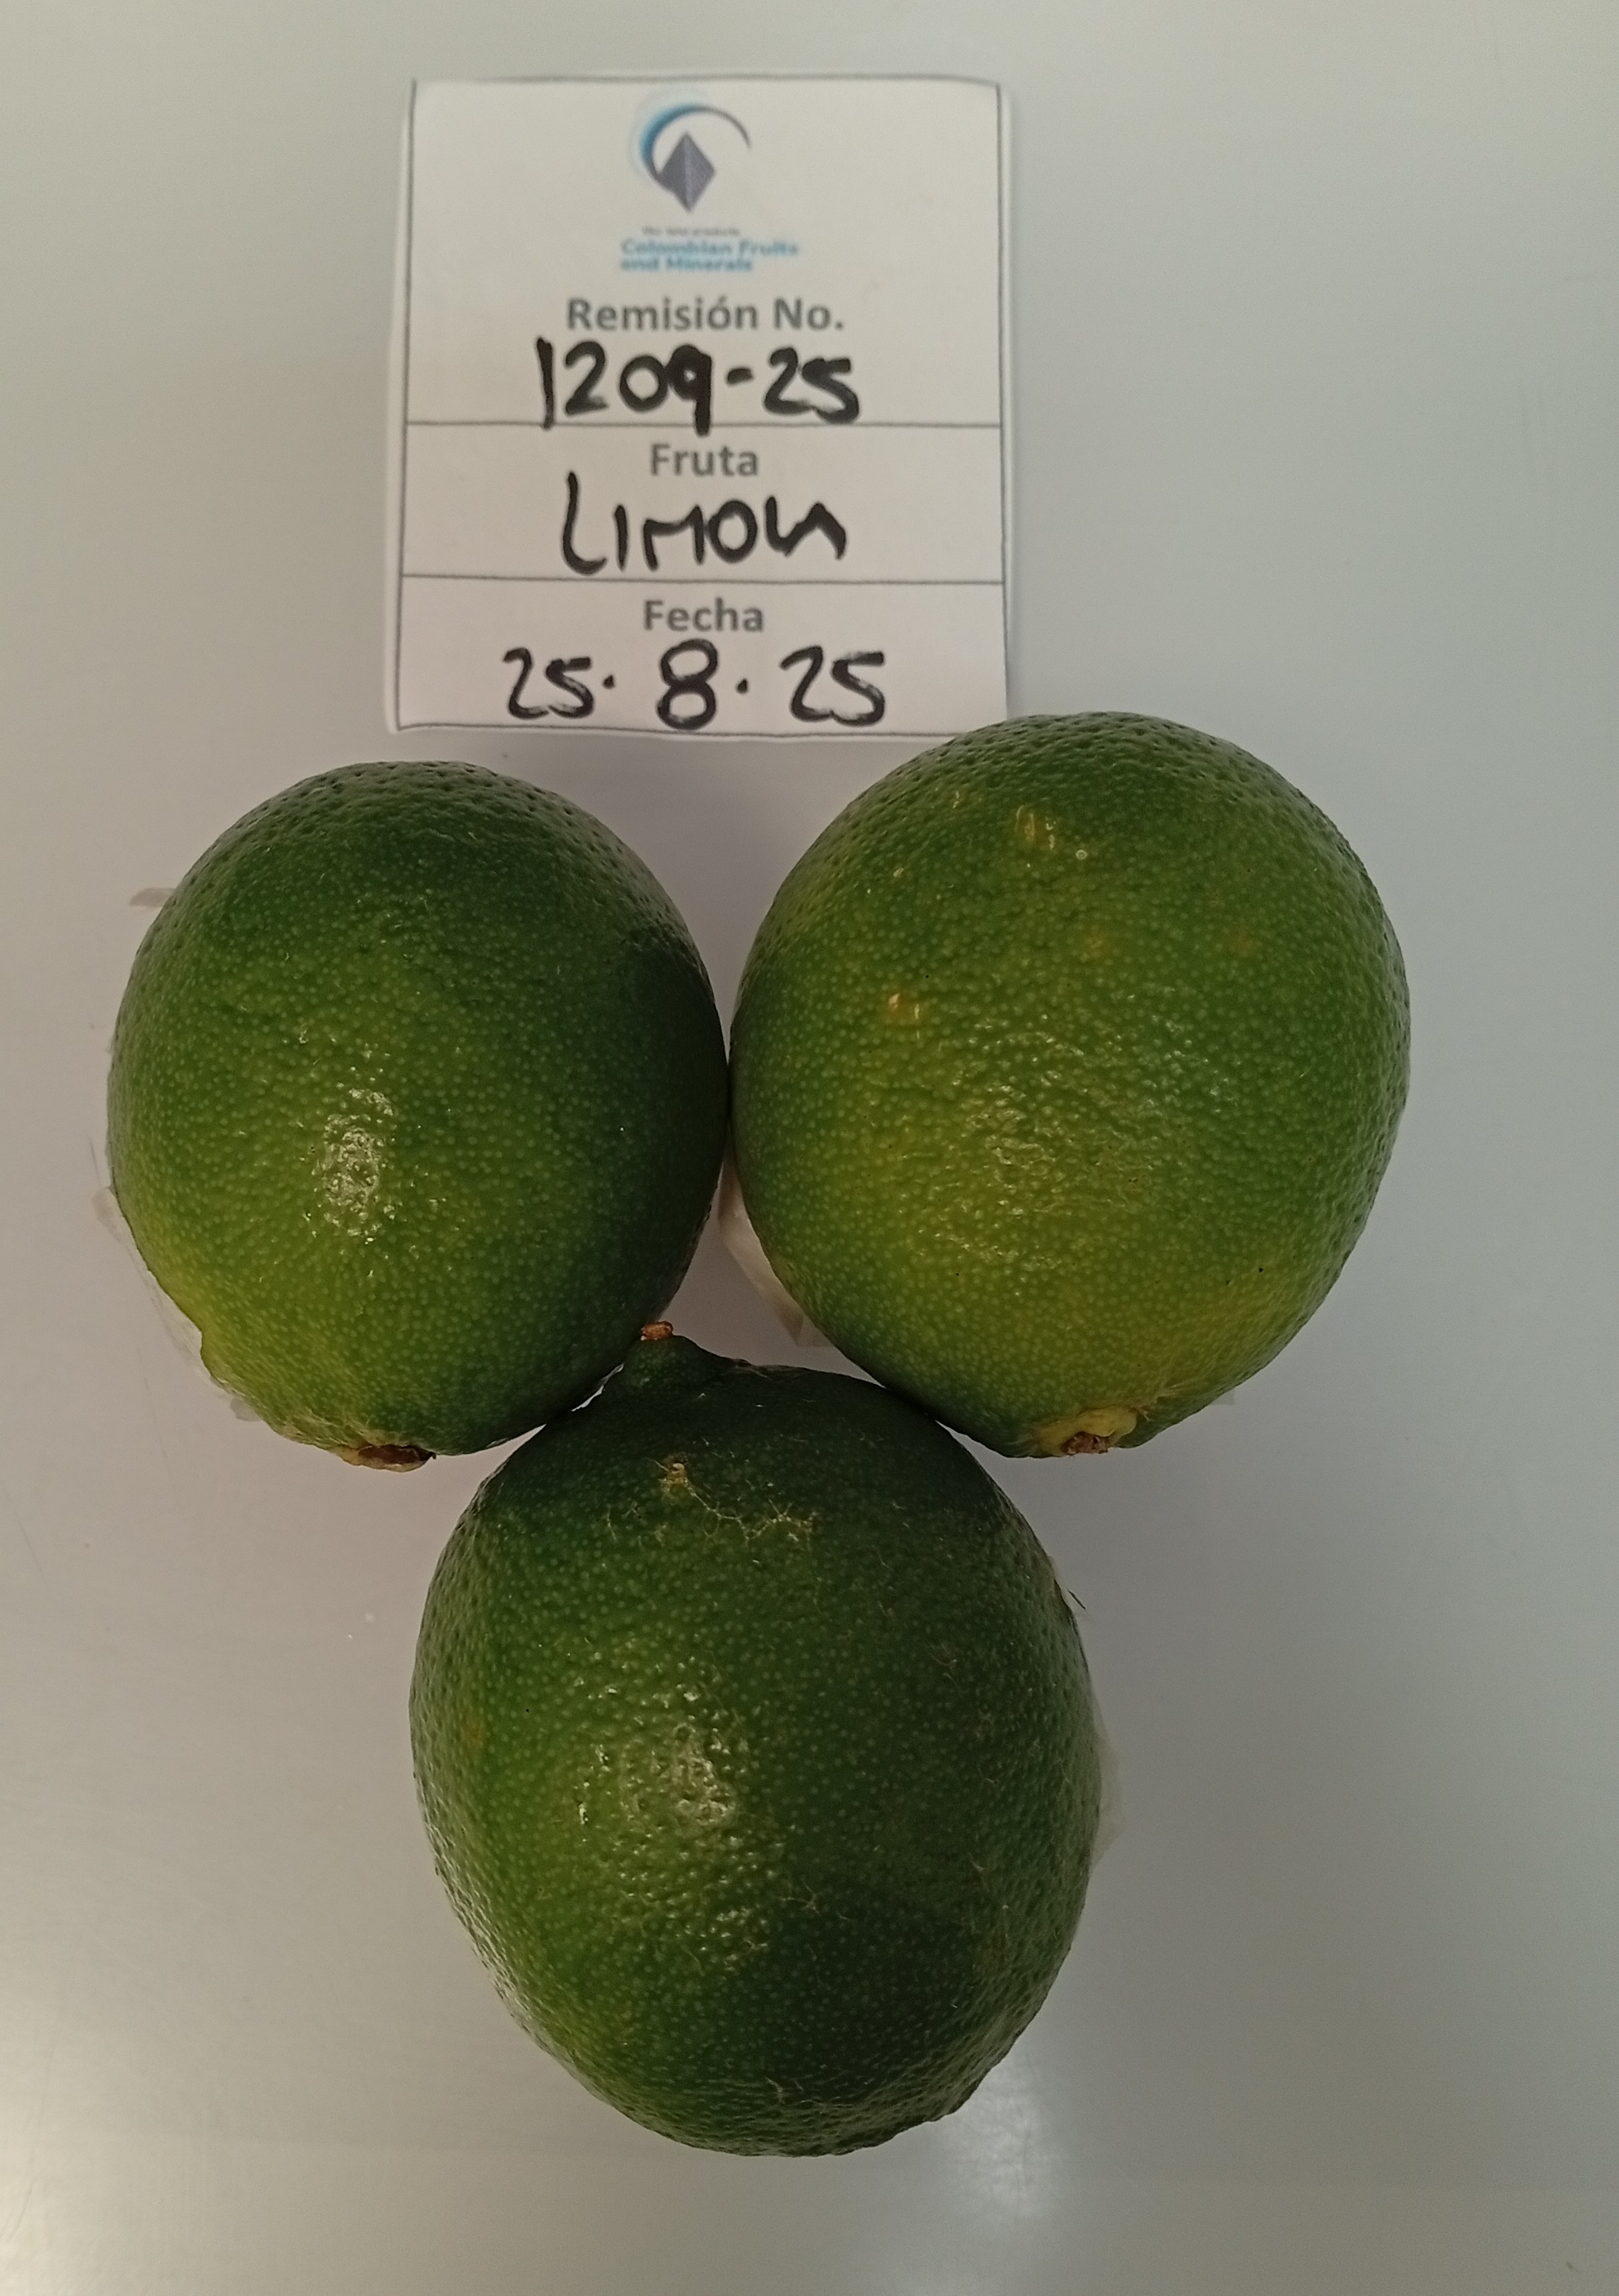 Colombian Fruits
and Minerals
Remisión No.
1209-25
Fruta
LIMON
Fecha
25. 8. 25